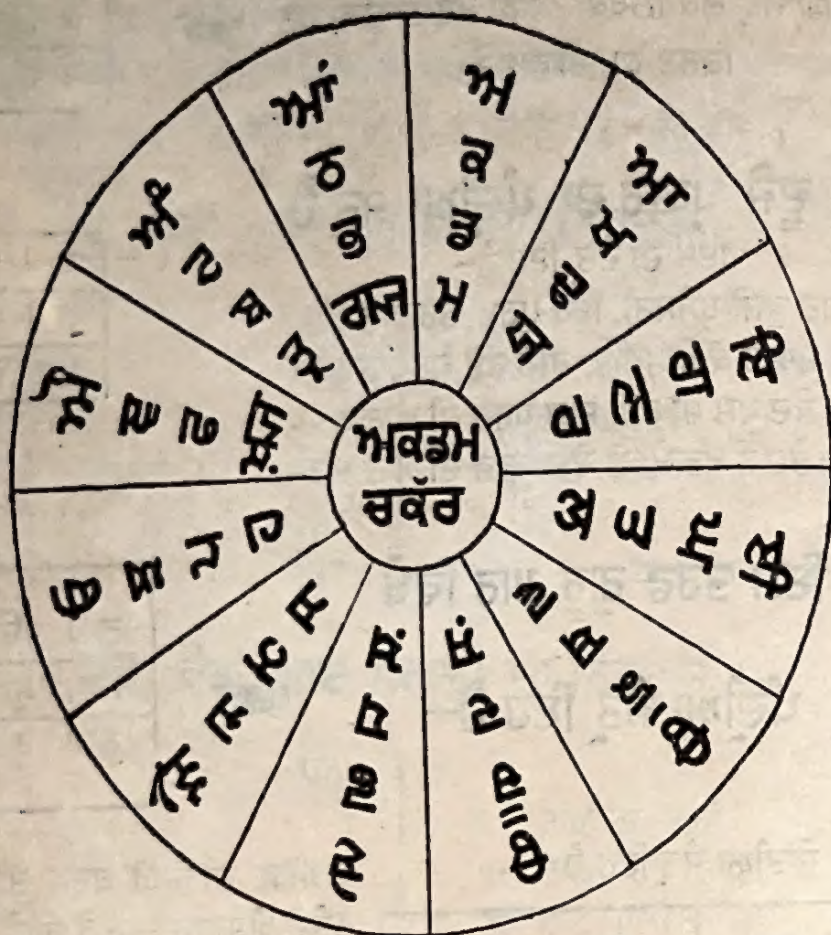 ਅਕਡਮ
ਚਕੱਰ
ਅ ਕ ਡ ਮ
ਆ ਖ ਢ ਯ
ਇ ਗ ਣ ਰ
ਈ ਘ ਤ ਲ
ਥ ਵ
ਦ ਸ਼
ਏ ਛ ਧ ਸ਼
ਐ ਜ ਨ ਸ
ਓ ਝ ਪ ਹ
ਫ
ਅੰ ਟ ਬ ਤ੍ਰ
ਆਂ ਠ ਭ